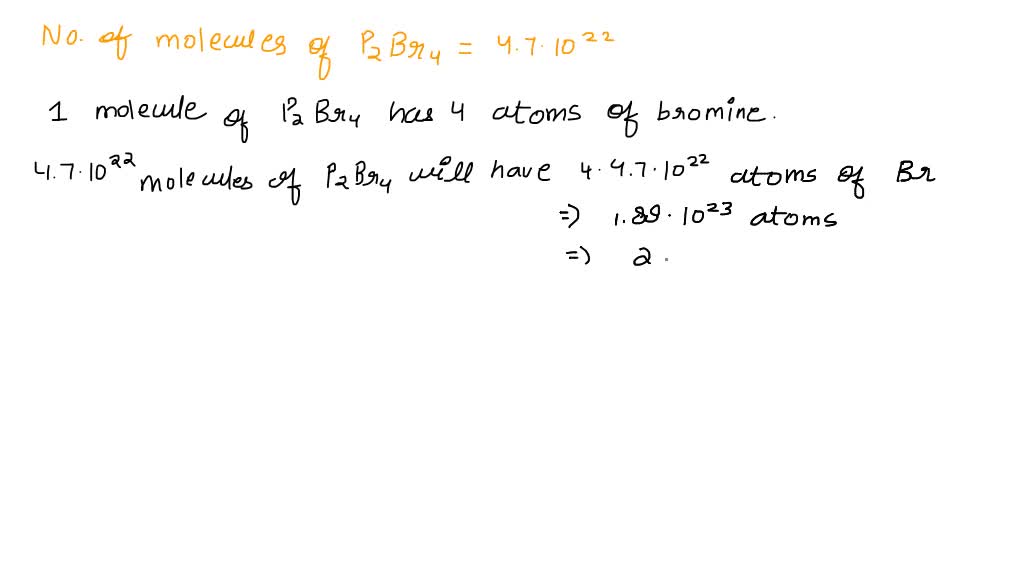 No. of molecules of P₂Br₄ = 4.7·10²²
1 molecule of P₂Br₄ has 4 atoms of bromine.
4.7·10²² molecules of P₂Br₄ will have 4·4.7·10²² atoms of Br
=) 1.89·10²³ atoms
=) 2 .